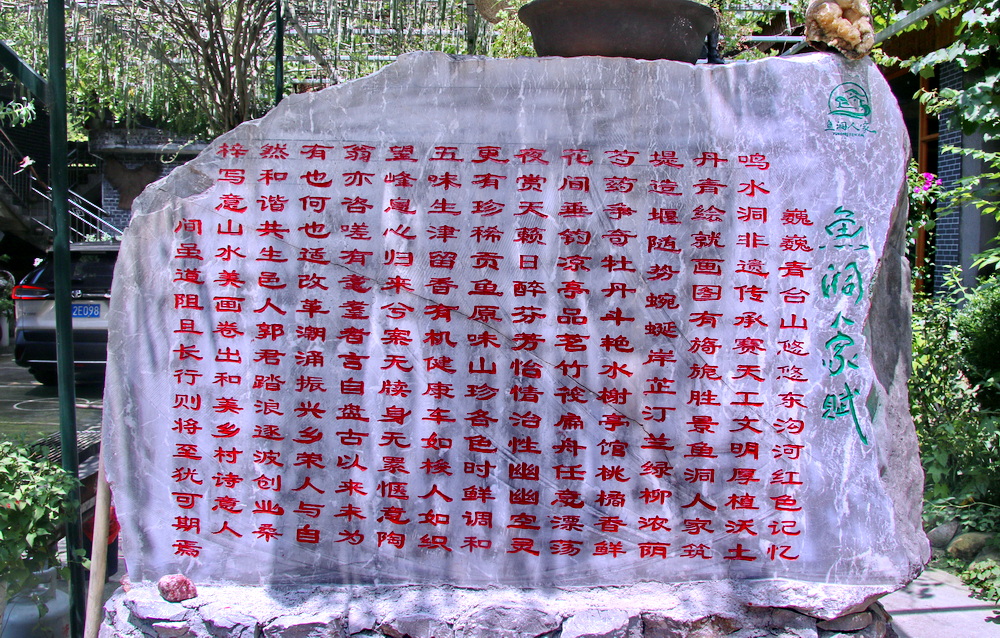 鱼洞人家
魚洞人家赋
巍巍青台山悠悠东沟河红色记忆
鸣水洞非遗传承赛天工文明厚植沃土
丹青绘就画图有旖旎胜景鱼洞人家筑
堤造堰随势蜿蜒岸芷汀兰绿柳浓荫
芍药争奇牡丹斗艳水榭亭馆桃橘香鲜
花间垂钓凉亭品茗竹筏扁舟任意漂荡
夜赏天籁日醉芬芳怡情治性幽幽空灵
更有珍稀贡鱼原味山珍各色时鲜调和
五味生津留香有机健康车如梭人如织
望峰息心归来兮案无牍身无累惬意陶
翁亦咨嗟有耄耋者言自盘古以来未为
有也何也适改革潮涌振兴乡荣人与自
然和谐共生邑人郭君踏浪逐波创业桑
梓写意山水美画卷出和美乡村诗意人
间虽道阻且长行则将至犹可期焉
2E098